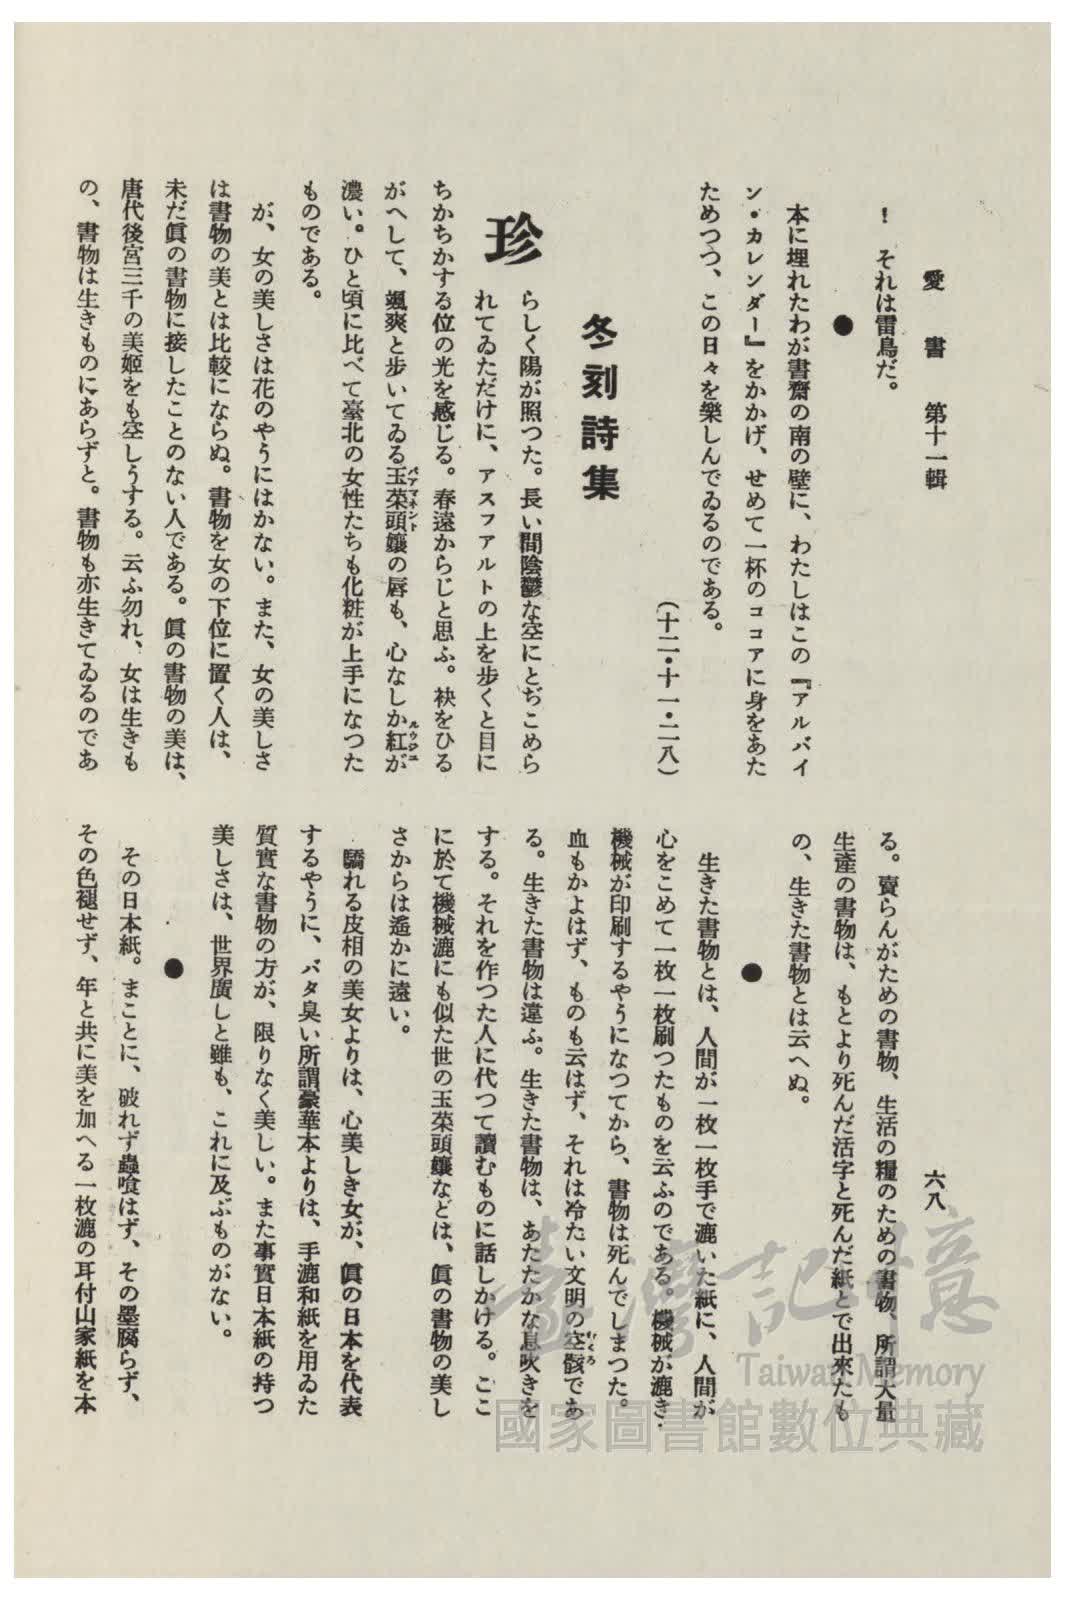 愛書　第十一輯
六八
！　それは雷鳥だ。
●
本に埋れたわが書齋の南の壁に、わたしはこの『アルバイ
ン・カレンダー』をかかげ、せめて一杯のココアに身をあた
ためつつ、この日々を樂しんでゐるのである。
（十二・十一・二八）
冬刻詩集
珍
らしく陽が照つた。長い間陰鬱な空にとぢこめら
れてゐただけに、アスファルトの上を步くと目に
ちかちかする位の光を感じる。春遠からじと思ふ。袂をひる
がへして、颯爽と步いてゐる玉荣頭孃の唇も、心なしか紅が
パアマネント
ルウジユ
濃い。ひと頃に比べて臺北の女性たちも化粧が上手になつた
ものである。
が、女の美しさは花のやうにはかない。また、女の美しさ
は書物の美とは比較にならぬ。書物を女の下位に置く人は、
未だ眞の書物に接したことのない人である。眞の書物の美は、
唐代後宮三千の美姬をも空しうする。云ふ勿れ、女は生きも
の、書物は生きものにあらずと。書物も亦生きてゐるのであ
る。賣らんがための書物、生活の糧のための書物、所謂大量
生產の書物は、もとより死んだ活字と死んだ紙とで出來たも
の、生きた書物とは云へぬ。
●
生きた書物とは、人間が一枚一枚手で漉いた紙に、人間が
心をこめて一枚一枚刷つたものを云ふのである。機械が漉き、
機械が印刷するやうになつてから、書物は死んでしまつた。
血もかよはず、ものも云はず、それは冷たい文明の空骸であ
むくろ
る。生きた書物は違ふ。生きた書物は、あたたかな息吹きを
する。それを作つた人に代つて讀むものに話しかける。ここ
に於て機械漉にも似た世の玉荣頭孃などは、眞の書物の美し
さからは遙かに遠い。
驕れる皮相の美女よりは、心美しき女が、眞の日本を代表
するやうに、バタ臭い所謂豪華本よりは、手漉和紙を用ゐた
質實な書物の方が、限りなく美しい。また事實日本紙の持つ
美しさは、世界廣しと雖も、これに及ぶものがない。
●
その日本紙。まことに、破れず蟲喰はず、その墨腐らず、
その色褪せず、年と共に美を加へる一枚漉の耳付山家紙を本
臺灣記憶
Taiwan Memory
國家圖書館數位典藏